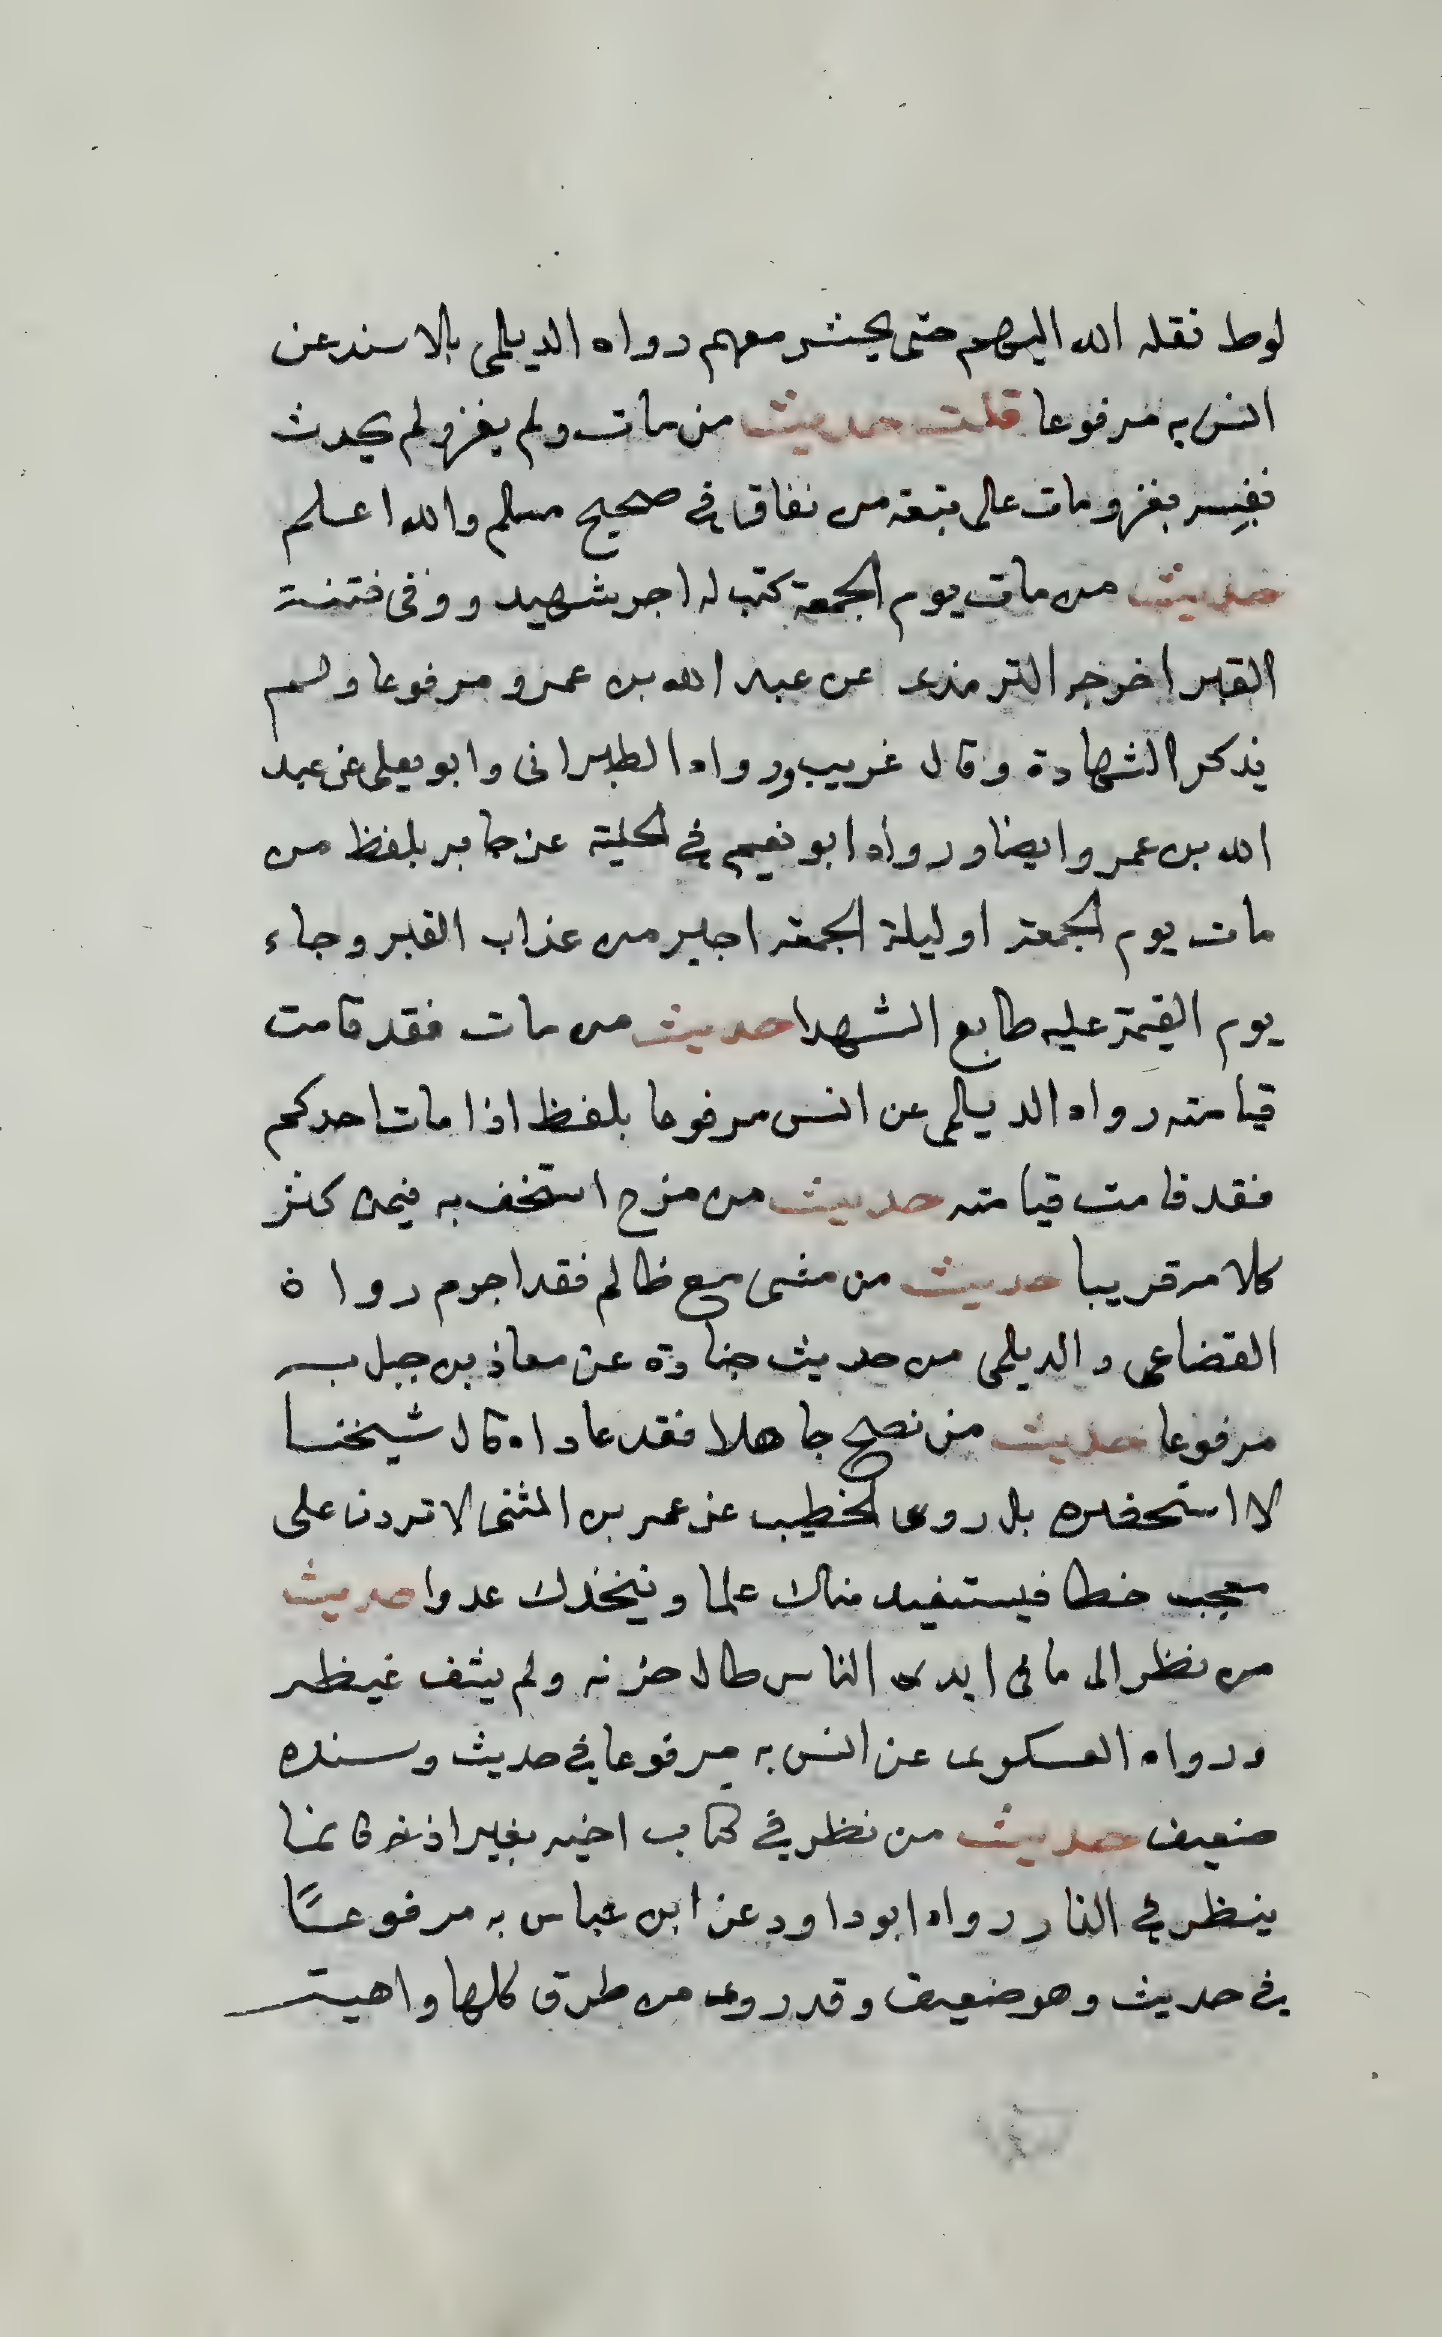 لوط نقله الله اليهم حتى يحشر معهم رواه الديلمى بالاسند عن
انس به مرفوعا قلت حديث من مات ولم يغزو لم يحدث
نفسه بغزو مات على شعبة من نفاق في صحيح مسلم والله اعلم
حديث من مات يوم الجمعة كتب له اجر شهيد ووفى فتنة
القبر اخرجه الترمذى عن عبد الله بن عمرو مرفوعا ولم
يذكر الشهادة وقال غريب ورواه الطبرانى وابو يعلى عن عبد
الله بن عمرو ايضا ورواه ابو نعيم في الحلية عن جابر بلفظ من
مات يوم الجمعة او ليلة الجمعة اجير من عذاب القبر وجاء
يوم القيمة عليه طابع الشهدا حديث من مات فقد قامت
قيامته رواه الديلمى عن انس مرفوعا بلفظ اذا مات احدكم
فقد قامت قيامته حديث من مزح استخف به فيمن كثر
كلامه قريبا حديث من مشى مع ظالم فقد اجرم رواه
القضاعى والديلمى من حديث جنادة عن معاذ بن جبل به
مرفوعا حديث من نصح جاهلا فقد عاداه قال شيخنا
لا استحضره بل روى الخطيب عن عمر بن المثنى لا تردن على
معجب خطا فيستفيد منك علما ويتخذك عدوا حديث
من نظر الى ما فى ايدى الناس طال حزنه ولم يشف غيظه
ورواه العسكرى عن انس به مرفوعا في حديث وسنده
ضعيف حديث من نظر في كتاب اخيه بغير اذنه فانما
ينظر في النار رواه ابو داود عن ابن عباس به مرفوعًا
في حديث وهو ضعيف وقد روى من طرق كلها واهية